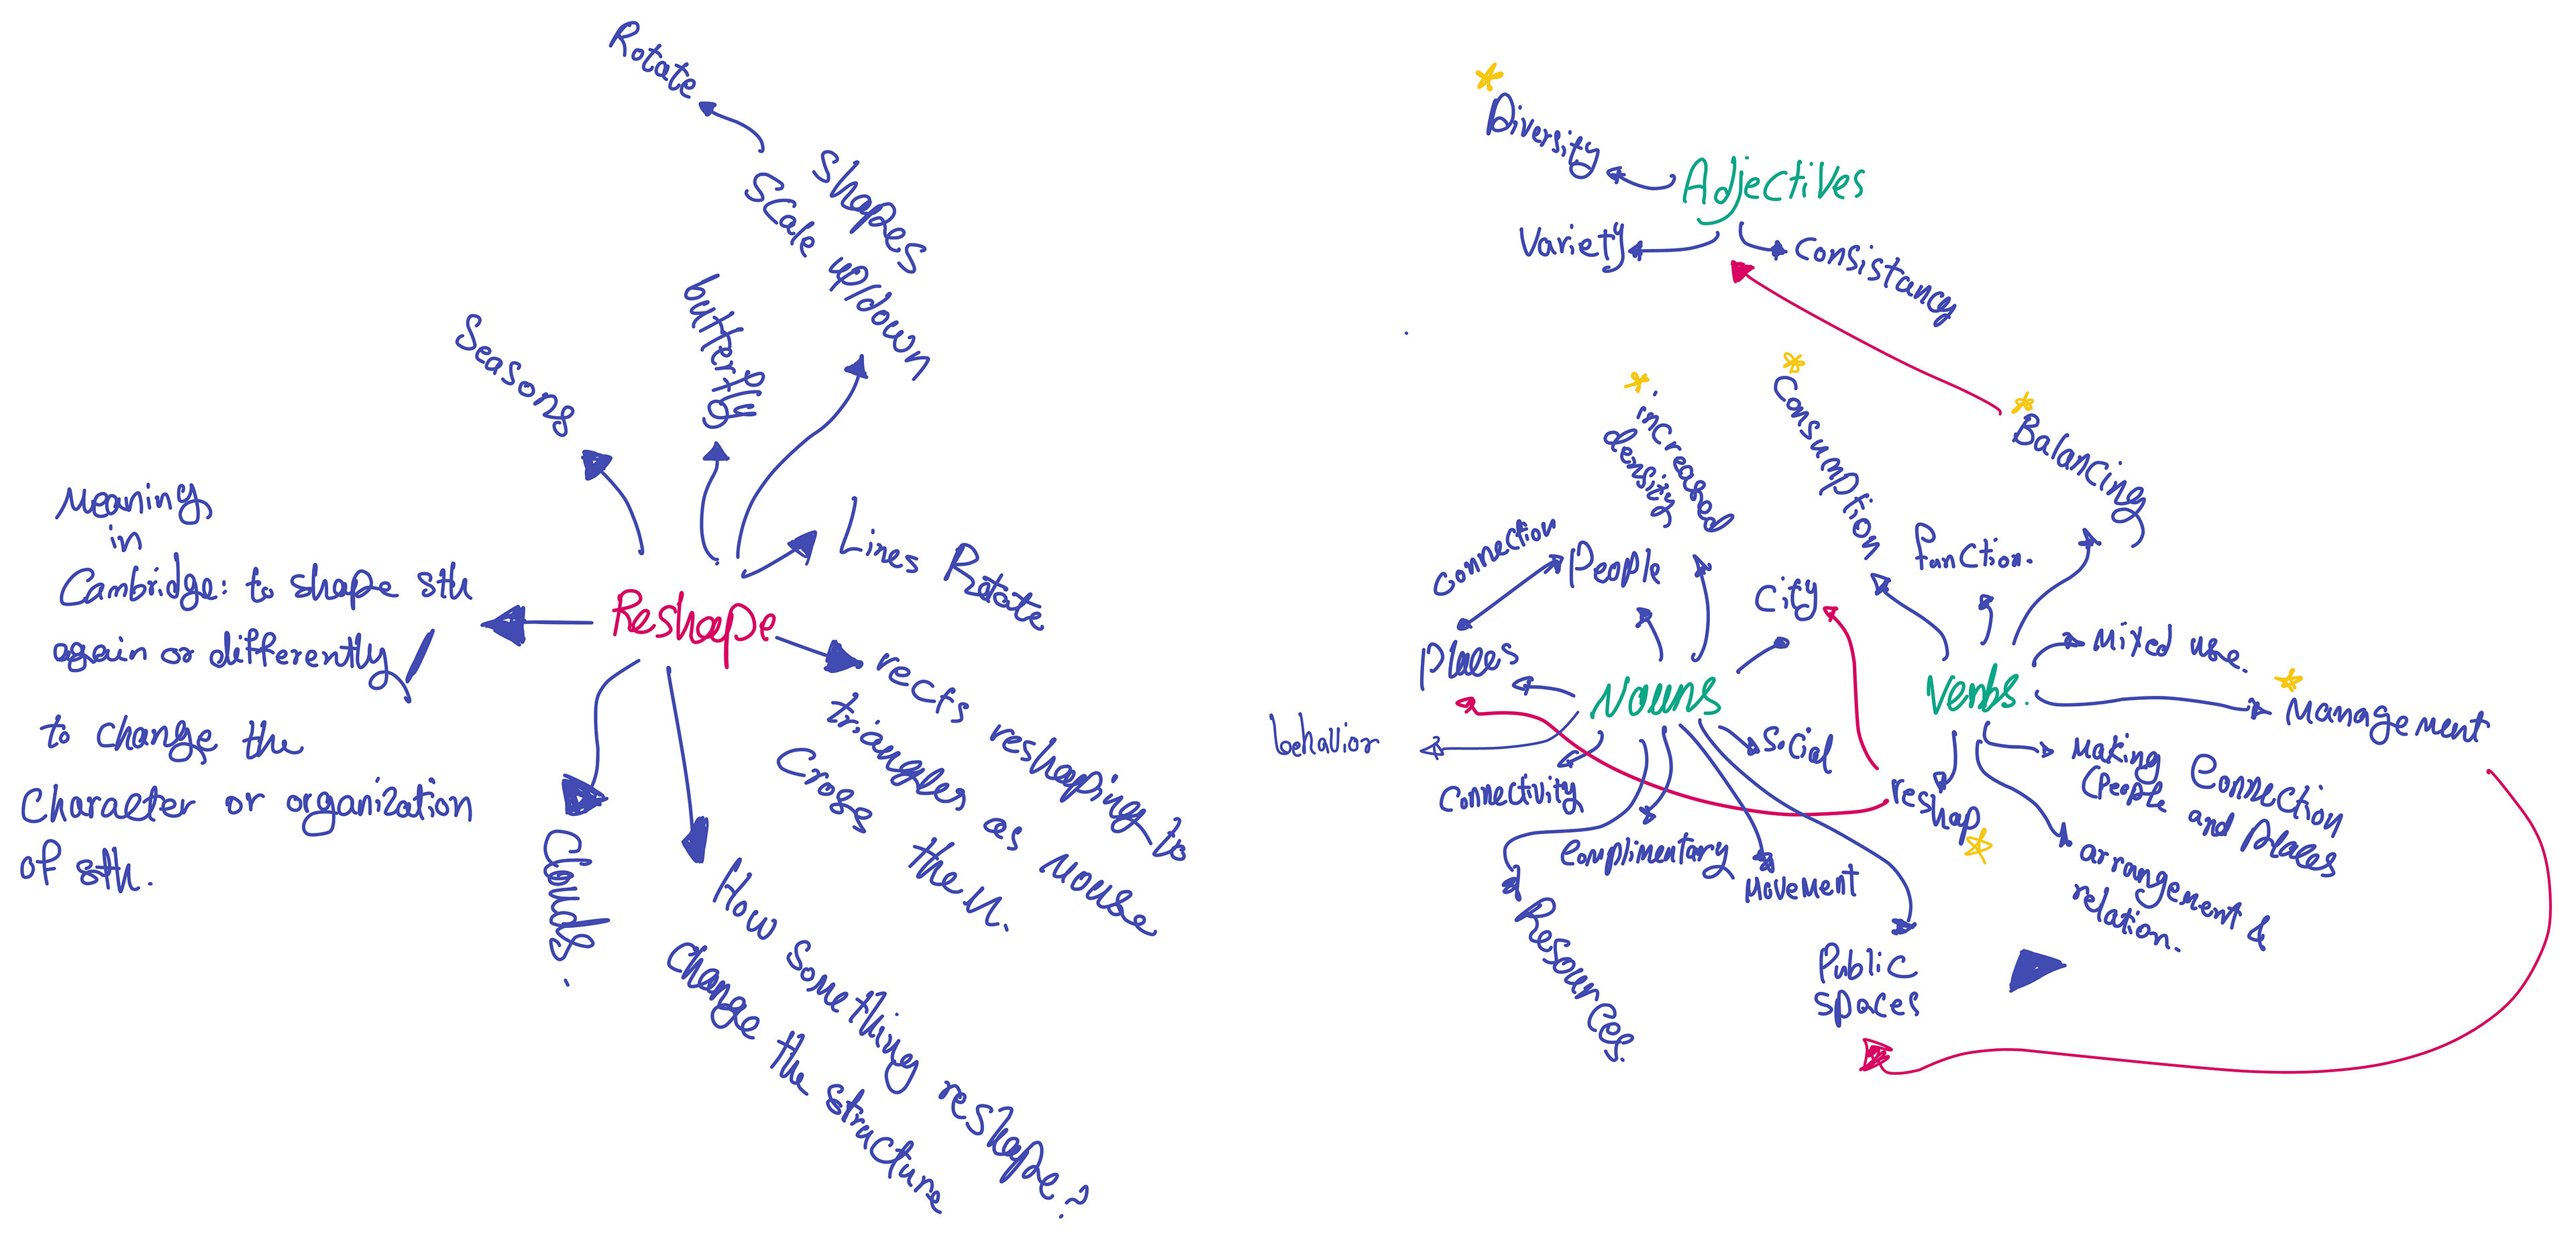 Rotate
Shapes
Scale up/down
butterfly
Seasons
Lines Rotate
Meaning
in
Cambridge: to shape sth
again or differently/
to change the
Character or organization
of sth.
Reshape
rects reshaping to
triangles as mouse
Cross them.
Clouds.
How Something reshape?
Change the structure
Diversity
Adjectives
Variety
Consistancy
increased
density
Consumption
Balancing
function.
Connection
People
City
Places
Nouns
Verbs.
Mixed use.
Management
behavior
Social
Connectivity
Complimentary
Movement
Resources.
Public
spaces
reshap
Making Connection
(People and Places
arrangement &
relation.